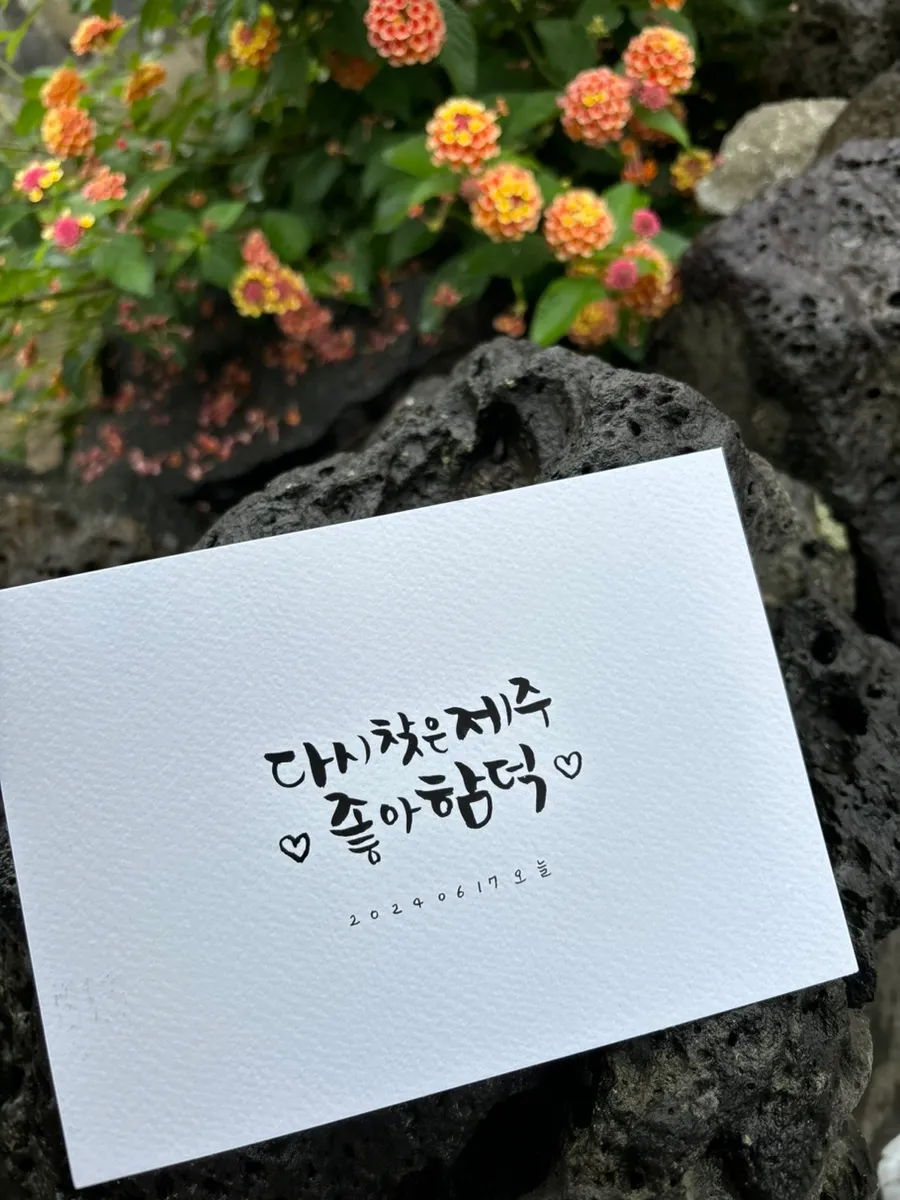 다시찾은제주
♡ 좋아함덕 ♡
20240617 오늘